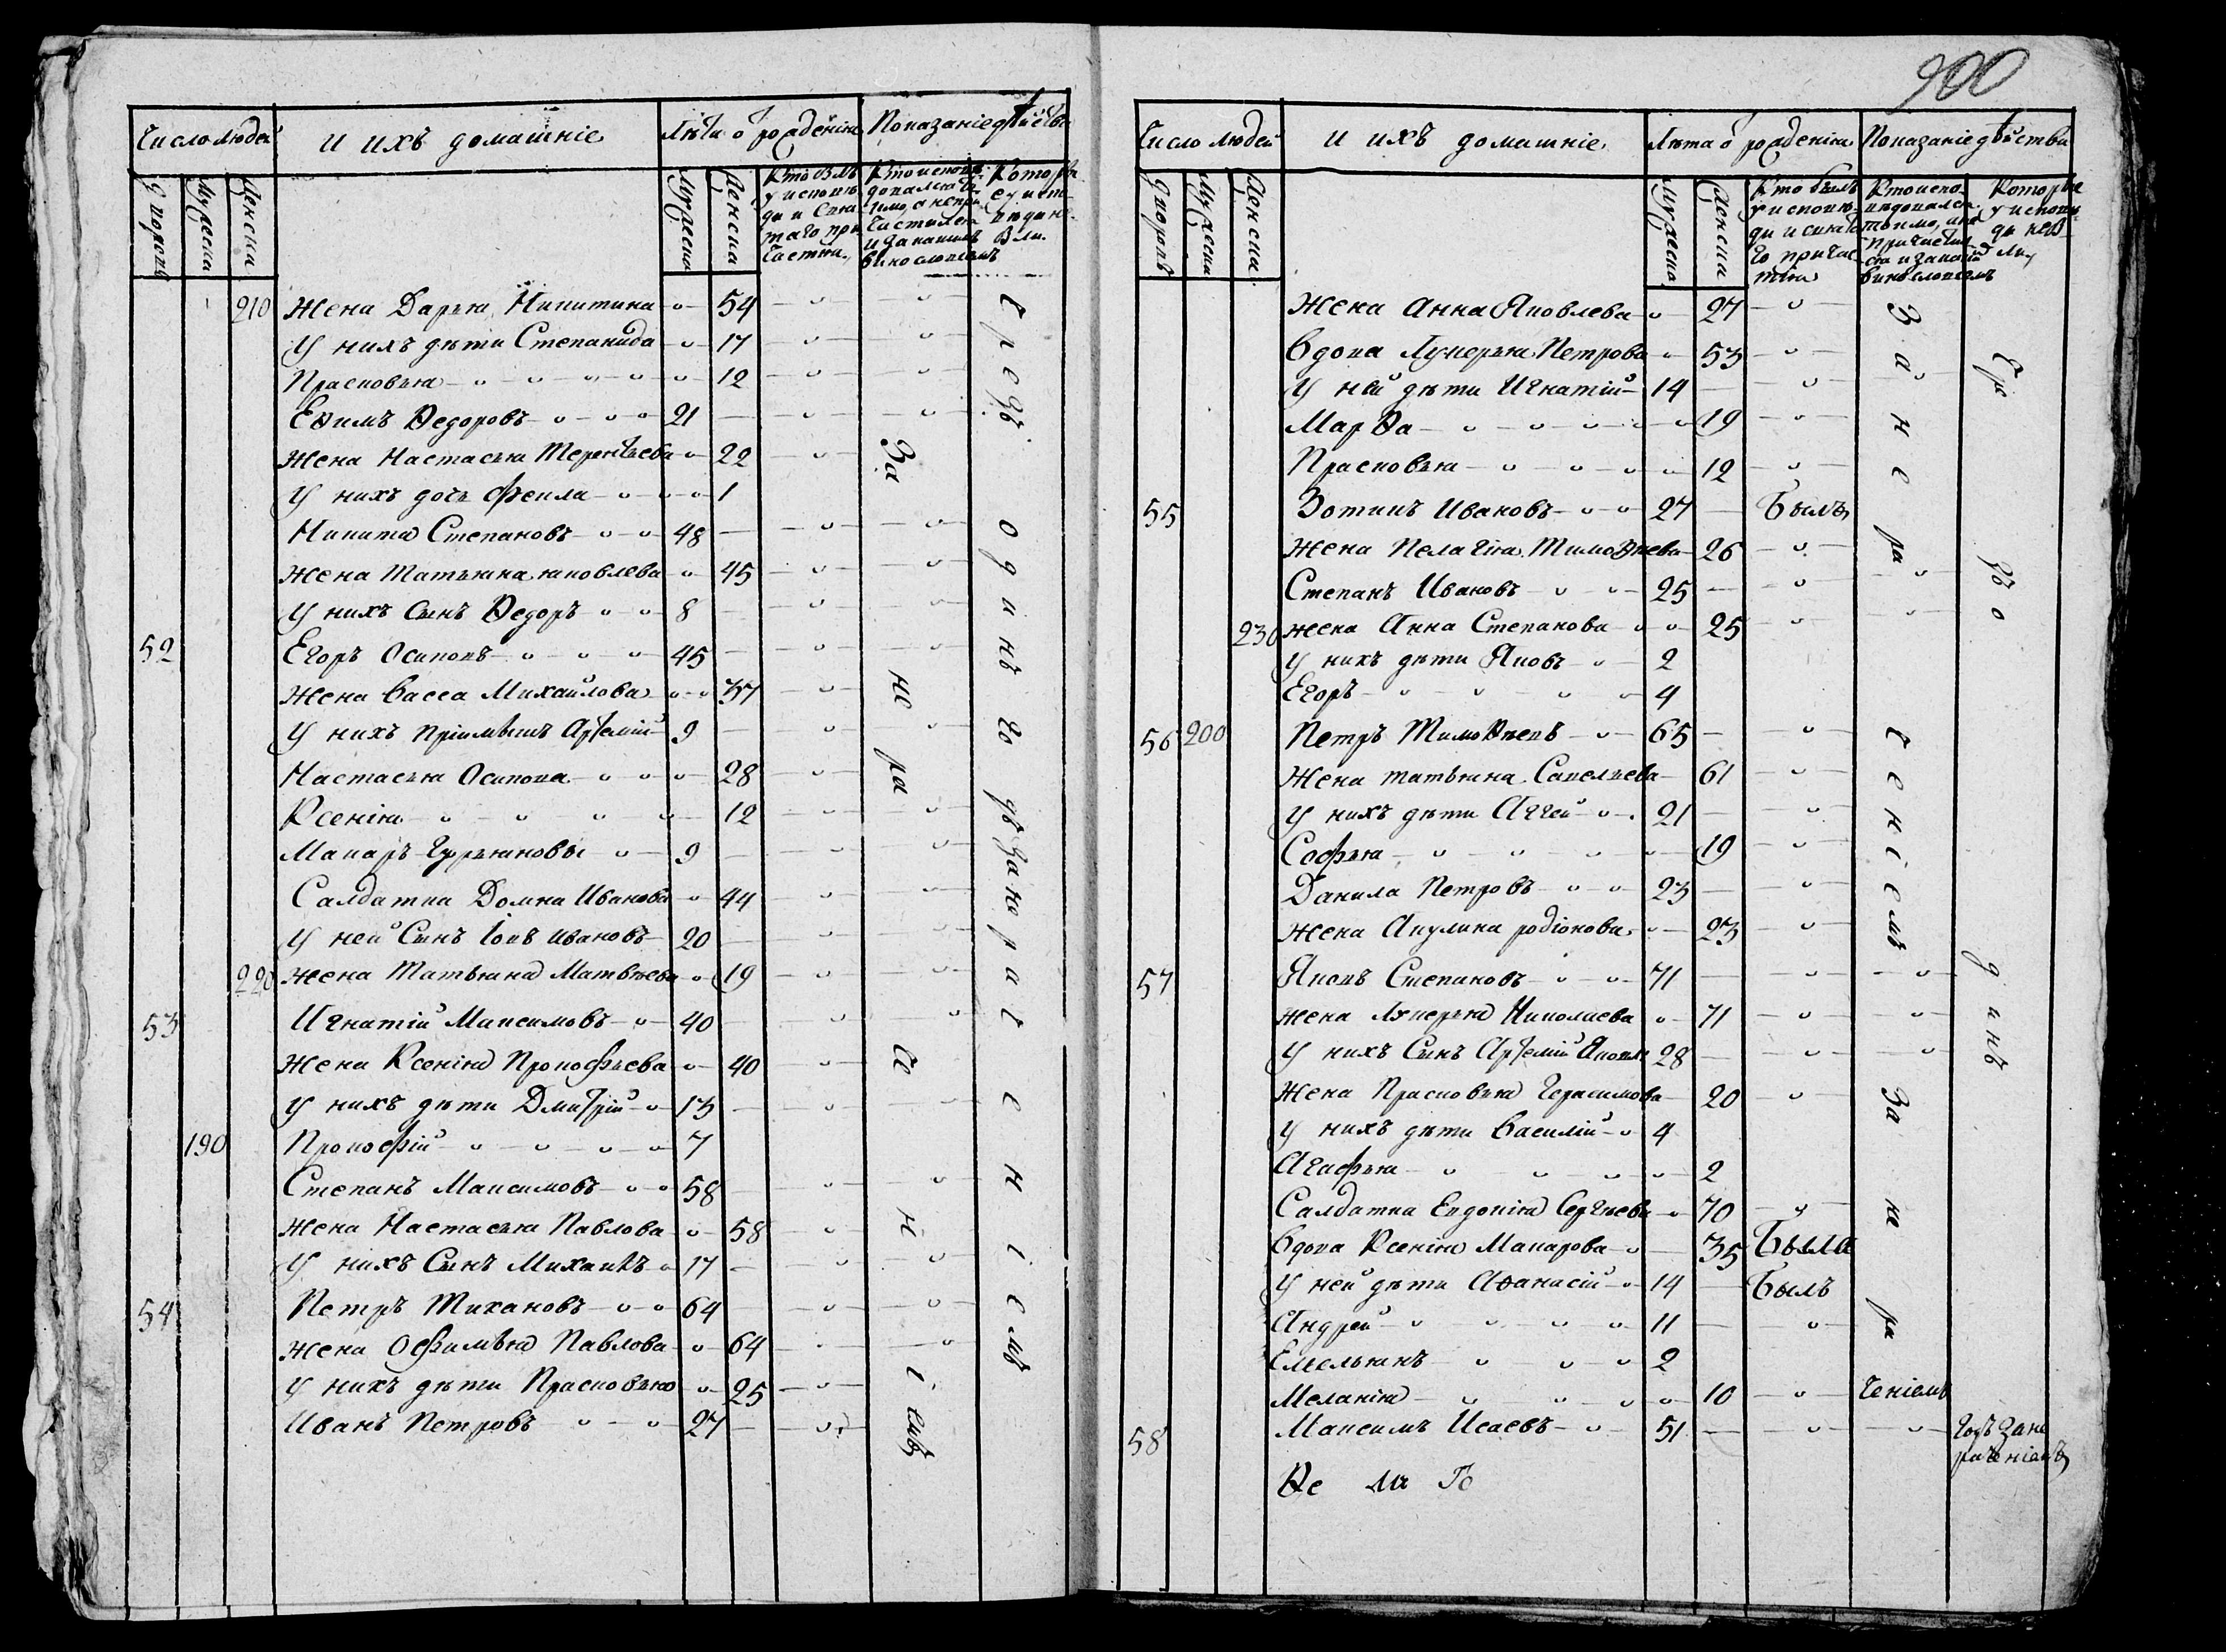 Число людей и ихъ домашніе Лѣта ѿ рожденія Показаніе дѣйства
Дворовъ Мужеска Женска Мужеска Женска
Кто былъ у исповѣди и святаго причастія
Кто исповѣдовался токмо, а не причастился и за какимъ винословіемъ
Которые у исповѣди не были
210 жена Дарья Никитина 54
У нихъ дѣти Степанида 17
Прасковья 12
Еѳимъ Ѳедоровъ 21
жена Настасья Терентьева 22
У нихъ дочь Фекла 1
Никита Степановъ 48
жена Татьяна яковлева 45
У нихъ Сынъ Ѳедоръ 8
52 Егоръ Осиповъ 45
жена Васса Михайлова 37
У нихъ пріимышъ Артемій 9
Настасья Осипова 28
Ксенія 12
Макаръ Гурьяновы 9
Салдатка Домна Иванова 44
У ней Сынъ Іовъ Ивановъ 20
220 жена Татьяна Матвѣева 19
53 Игнатій Максимовъ 40
жена Ксенія Прокофьева 40
У нихъ дѣти Дмитрій 13
190 Прокофій 7
Степанъ Максимовъ 58
жена Настасья Павлова 58
У нихъ Сынъ Михаилъ 17
54 Петръ Тихановъ 64
жена Офимья Павлова 64
У нихъ дѣти Прасковья 25
Иванъ Петровъ 27
За не ра че н і емъ
Чрезъ одинъ годъ за нераченіемъ
900
Число людей и ихъ домашніе Лѣта ѿ рожденія Показаніе дѣйства
Дворовъ Мужеска Женска Мужеска Женска
Кто былъ у исповѣди и святаго причастія
Кто исповѣдовался токмо, а не причастился и за какимъ винословіемъ
Которые у исповѣди не были
Жена Анна Яковлева 27
Вдова Лукерья Петрова 53
У ней дѣти Игнатій 14
Марѳа 19
Прасковья 12
55 Зотикъ Ивановъ 27 Былъ
жена Пелагія Тимоѳеева 26
Степанъ Ивановъ 25
230 жена Анна Степанова 25
У нихъ дѣти Яковъ 2
Егоръ 4
56 200 Петръ Тимоѳеевъ 65
Жена татьяна Савельева 61
У нихъ дѣти Аггей 21
Софья 19
Данила Петровъ 23
жена Акулина родіонова 23
57 Яковъ Степановъ 71
жена Лукерья Николаева 71
У нихъ Сынъ Артемій Яковл. 28
Жена Прасковья Герасимова 20
У нихъ дѣти Василій 4
Агафья 2
Салдатка Евдокія Сергѣева 70
Вдова Ксенія Макарова 35 Была
У ней дѣти Аѳанасій 14 Былъ
Андрей 11
Емельянъ 2
Меланія 10 ченіемъ
58 Максимъ Исаевъ 51 годъ за не
раченіемъ
За не ра ченіемъ
За не ра
Чрезъ одинъ
Ѳе Ми Го